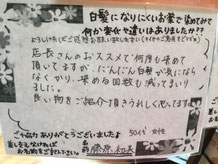 白髪になりにくいお茶で染めてみて
何か変化や違いはありましたか??
店長さんのおススメで何度も染めて
頂いてますが、だんだん白髪が気にならなく
なり、染める回数も減ってまいり
ました。
良い物をご紹介頂きうれしく思ってます
ご協力ありがとうございました
50代 女性